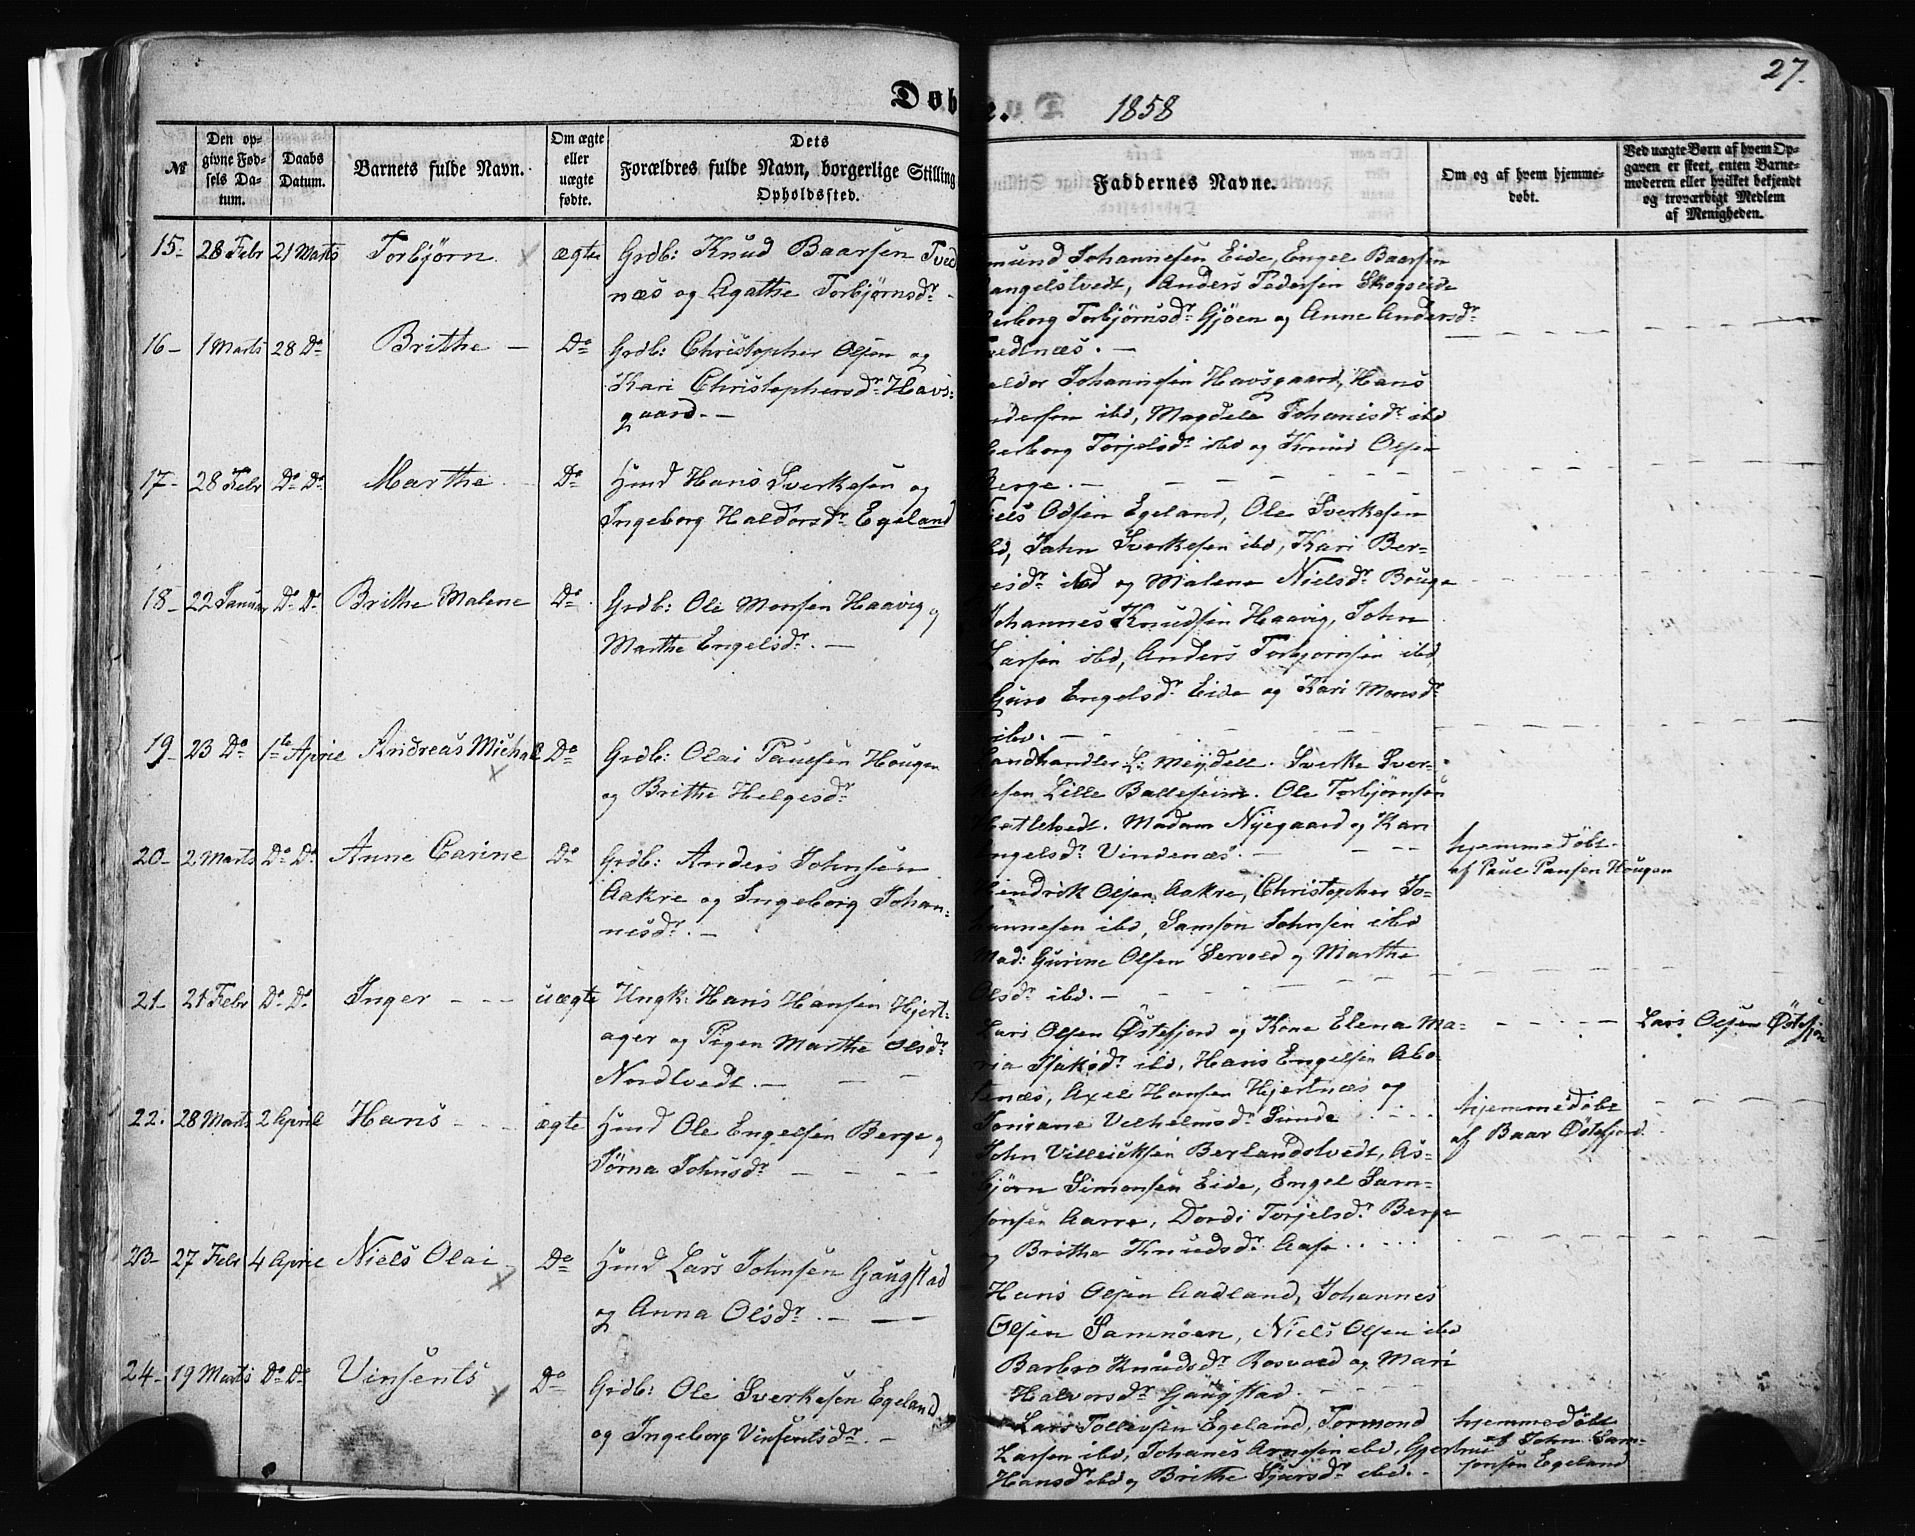 27.
Døb
e.
1858
№
Den op-
givne Fød-
sels Da-
tum.
Daabs
Datum.
Barnets fulde Navn.
Om ægte
eller
uægte
fødte.
Dets
Forældres fulde Navn, borgerlige Stilling
Opholdssted.
Faddernes Navne.
Om og af hvem hjemme-
døbt.
Ved uægte Børn af hvem Op-
gaven er skeet, enten Barne-
moderen eller hvilket bekjendt
og troværdigt Medlem
af Menigheden.
15- 28 Febr 21 Marts Torbjørn ægte Grdb: Knud Baarsen Tved
næs og Agathe Torbjørnsdr -
mund Johannesen Eide, Engel Baarsen
angelstvedt, Anders Pedersen Skogseide
erborg Torbjørnsdr Gjøen og Anne Andersdr
vedtnæs. -
16- 1 Marts 28 Do Brithe - Do Grdb: Christopher Olsen og
Kari Christophersdr Havs-
gaard. -
aldor Johannesen Havsgaard, Hans
ndersen ibd, Magdele Johanisdr ibd
gerborg Torjelsdr ibd og Knud Olsen
Berge. -
17- 28 Febr Do Do Marthe Do Hmd Hans Sverkesen og
Ingeborg Haldorsdr Egeland
iels Odsen Egeland, Ole Sverkesen
bd, John Sverkesen ibd, Kari Ber-
esdr ibd og Malene Nielsdr Bouge
18- 22 Januar Do Do Brithe Malene Do Grdb: Ole Monsen Haavig og
Marthe Engelsdr. -
Johannes Knudsen Haavig, John
Larsen ibd, Anders Torbjørnsen ibd,
Guro Engelsdr Eide og Kari Monsdr
ibd. -
19- 23 Do 1ste April Andreas Michal Do Grdb: Olai Paulsen Hougen
og Brithe Helgesdr
Landhandler L: Meydell. Sverke Sver-
kesen Lille Balleseim. Ole Torbjørnsen
Hatletvedt. Madam Nyegaard og Kari
Engelsdr Vindenæs. -
hjemmedøbt
af Paul Paulsen Hougen
20- 2 Marts Do Do Anne Carine Do Grdb: Anders Johnsen
Aakre og Ingeborg Johan-
nisdr. -
Hendrik Olsen Aakre, Christopher Jo-
hannesen ibd, Samson Johnsen ibd
Mad: Gurine Olsen Servold og Marthe
Olsdr ibd. -
21- 21 Febr Do Do Inger - - - uægte Ungk: Hans Hansen Hjert-
ager og Pigen Marthe Olsdr
Nordtvedt. -
Lars Olsen Østefjord og Kone Elena Ma-
ria Isaksdr ibd, Hans Engelsen Abo-
tenæs, Axel Hansen Hjertnæs og
Joniane Vilhelmsdr Sunde
Lars Olsen Østefjor
22. 28 Marts 2 April Hans - - - ægte Hmd Ole Engelsen Berge og
Jørna Johnsdr
John Villeicksen Berlandstvedt, As-
bjørn Simonsen Eide, Engel Sam-
sonsen Aarre, Dordi Torjelsdr Berge
og Brithe Knudsdr Aase
hjemmedøbt
af Baar Østefjord
23- 27 Febr 4 April Niels Olai - Do Hmd Lars Johnsen Gangstad
og Anna Olsdr. -
Hans Olsen Aadland, Johannes
Olsen Samnøen, Niels Olsen ibd
Barbro Knudsdr Rosvold og Mari
Halvorsdr Gangstad.
24- 19 Marts Do Do Vinsents Do Grdb: Ole Sverkesen Egeland
og Ingeborg Vinsentsdr. -
Lars Tollevsen Egeland, Tormond
Larsen ibd, Johanes Arnesen ibd, Gjertrud
Hansdr ibd og Brithe Sjursdr ibd. -
hjemmedøbt
af John Sam-
sonsen Egeland